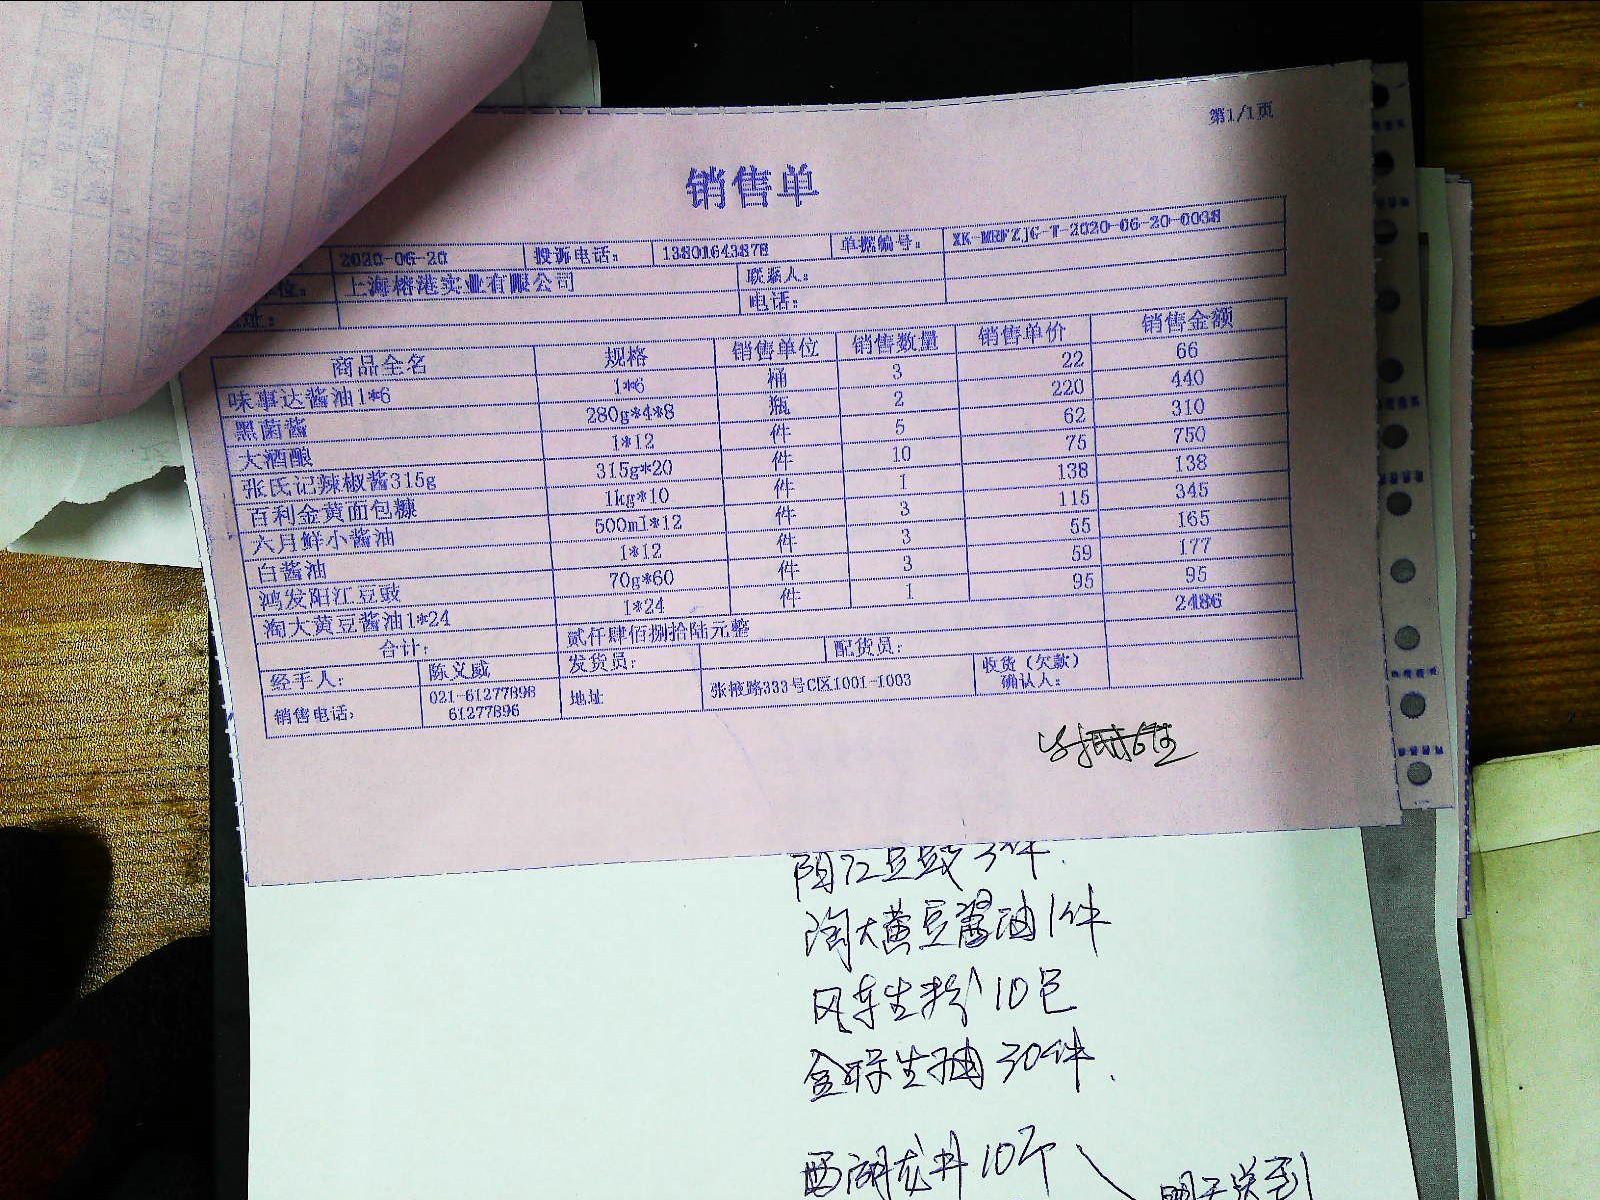 第1/1页
销售单
2020-06-20 投诉电话: 13801643878 单据编号: XK-MRFZJG-T-2020-06-20-0038
单位: 上海榕港实业有限公司 联系人:
地址: 电话:
商品全名 规格 销售单位 销售数量 销售单价 销售金额
味事达酱油1*6 1*6 桶 3 22 66
黑菌酱 280g*4*8 瓶 2 220 440
大酒酿 1*12 件 5 62 310
张氏记辣椒酱315g 315g*20 件 10 75 750
百利金黄面包糠 1kg*10 件 1 138 138
六月鲜小酱油 500ml*12 件 3 115 345
白酱油 1*12 件 3 55 165
鸿发阳江豆豉 70g*60 件 3 59 177
淘大黄豆酱油1*24 1*24 件 1 95 95
合计: 贰仟肆佰捌拾陆元整 2486
经手人: 陈文威 发货员: 配货员:
销售电话: 021-61277898 61277896 地址 张掖路333号C区1001-1003 收货(欠款)确认人:
阳江豆豉3件.
淘大黄豆酱油1件
风车生粉10包
金味生抽30件.
西湖龙井10斤
明天送到